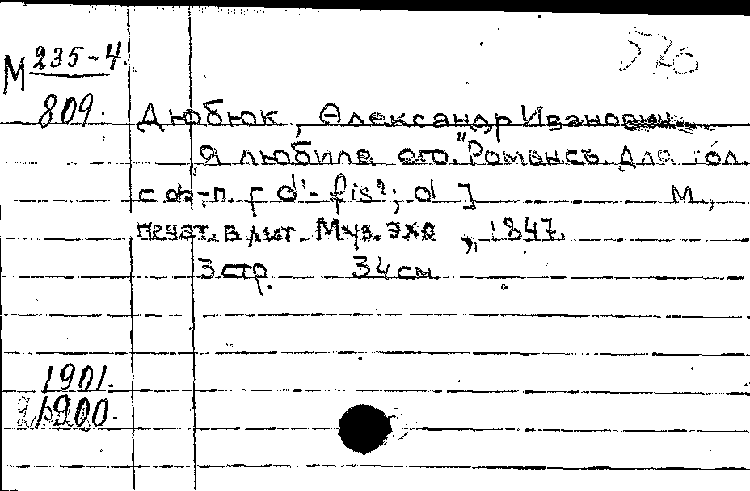 520
М 235-4.
809.
Дюбюк, Александр Иванович
Я любила его. "Романсъ. Для гол.
с ф-п. [d¹-fis²; d] М.,
печат. в лит. Муз. эхо, 1847.
3 стр. 34 см.
1901.
1900.